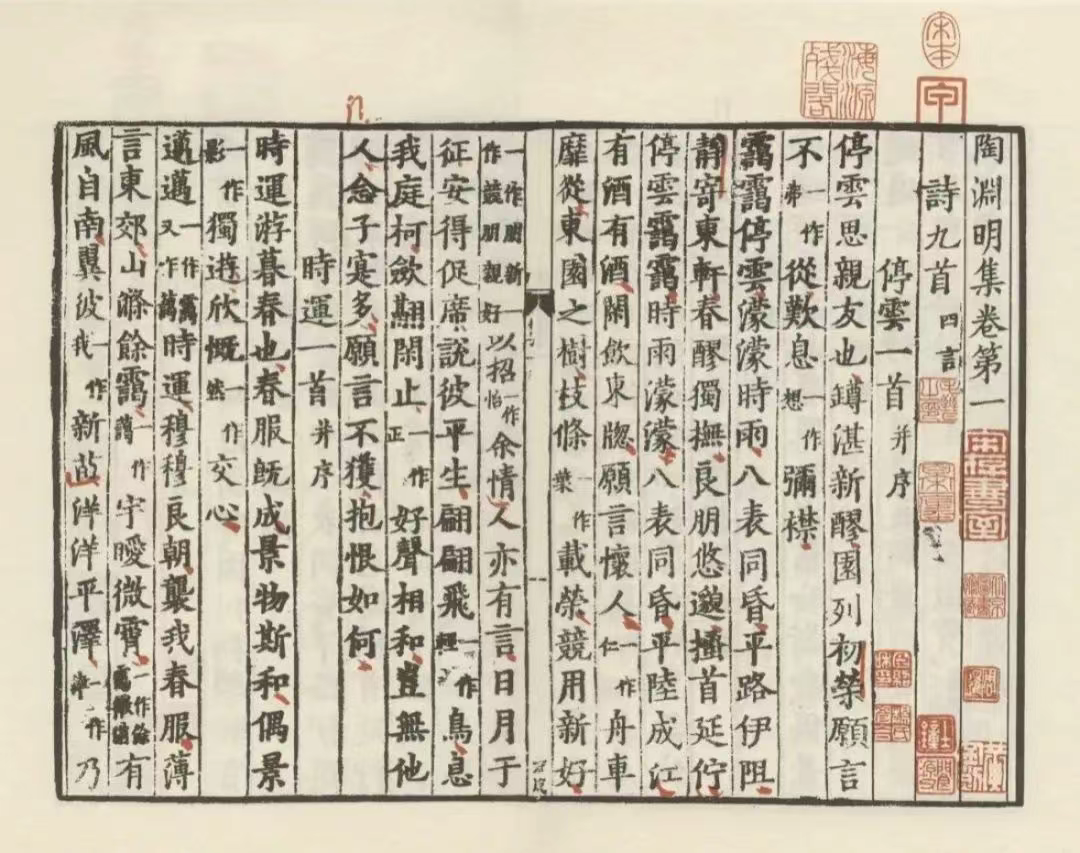 陶淵明集卷第一
詩九首 四言
停雲一首 并序
停雲思親友也罇湛新醪園列初榮願言
不一作弗從歎息一作想彌襟
靄靄停雲濛濛時雨八表同昏平路伊阻
靜寄東軒春醪獨撫良朋悠邈搔首延佇
停雲靄靄時雨濛濛八表同昏平陸成江
有酒有酒閑飲東牎願言懷人一作仁舟車
靡從東園之樹枝條一作葉載榮競用新好
一作朋新一作競朋親好以招一作怡余情人亦有言日月于
征安得促席說彼平生翩翩飛一作輕鳥息
我庭柯斂翮閑止一作正好聲相和豈無他
人念子寔多願言不獲抱恨如何
時運一首 并序
時運游暮春也春服旣成景物斯和偶景
一作影獨遊欣慨一作然交心
邁邁一作靄又作藹時運穆穆良朝襲我春服薄
言東郊山滌餘靄一作藹宇曖微霄一作餘靄微霄有
風自南翼彼一作我新苗洋洋平澤一作津乃
宋本
海源殘閣